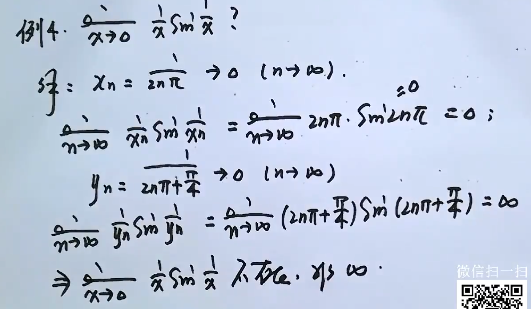 例4. lim x→0 1/x Sin 1/x ?
解: xn = 1/2nπ → 0 (n→∞).
lim n→∞ 1/xn Sin 1/xn = lim n→∞ 2nπ · Sin2nπ = 0 ;
=0
yn = 1/(2nπ+π/4) → 0 (n→∞)
lim n→∞ 1/yn Sin 1/yn = lim n→∞ (2nπ+π/4) Sin (2nπ+π/4) = ∞
⇒ lim x→0 1/x Sin 1/x 不存在, ∞.
微信扫一扫